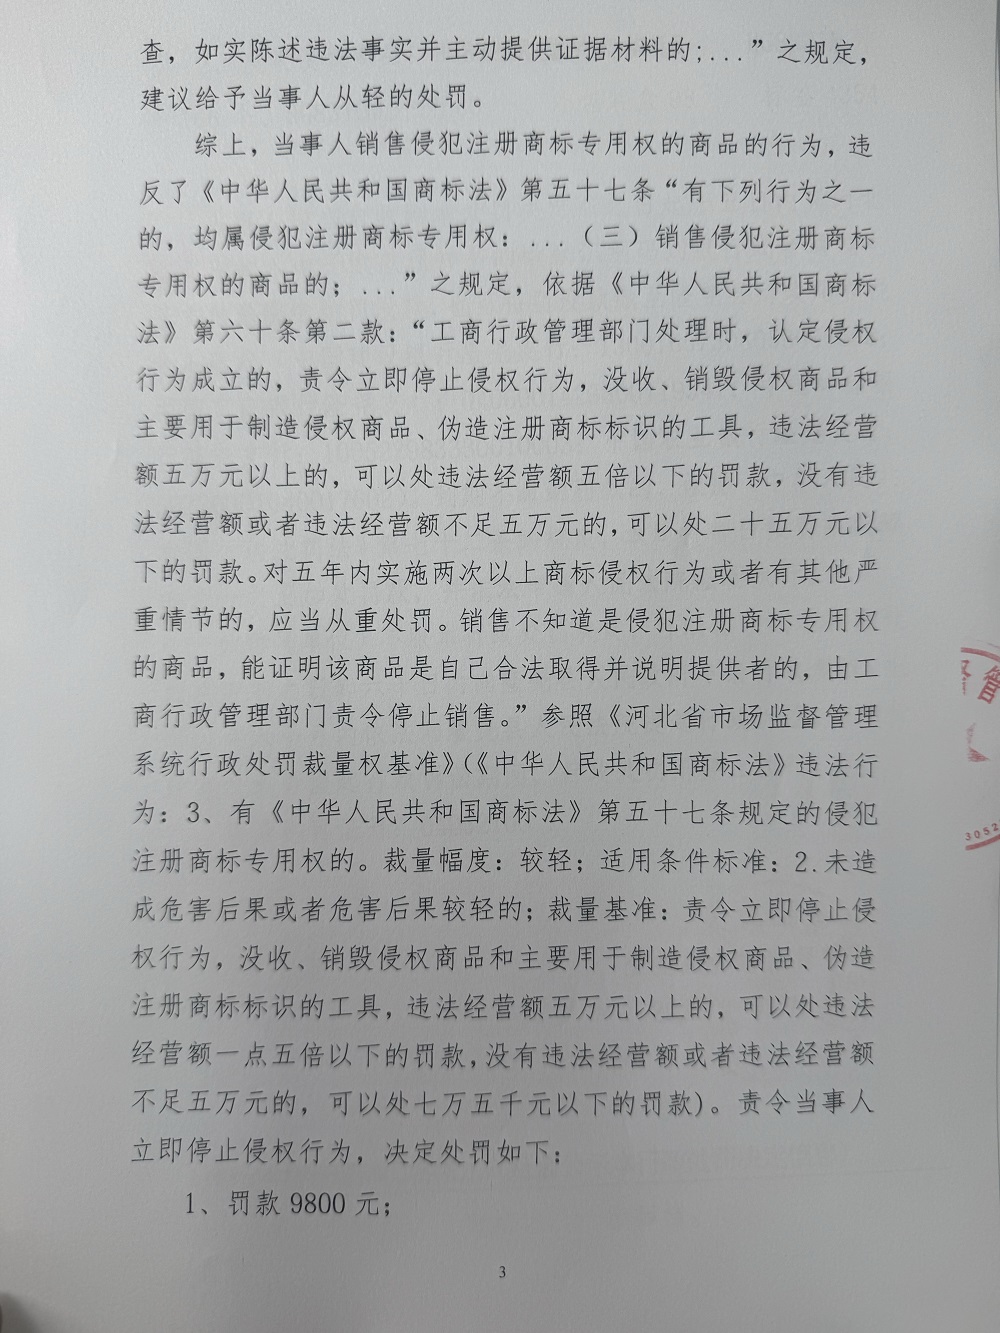 查，如实陈述违法事实并主动提供证据材料的;...”之规定，
建议给予当事人从轻的处罚。
综上，当事人销售侵犯注册商标专用权的商品的行为，违
反了《中华人民共和国商标法》第五十七条“有下列行为之一
的，均属侵犯注册商标专用权：...（三）销售侵犯注册商标
专用权的商品的；...”之规定，依据《中华人民共和国商标
法》第六十条第二款：“工商行政管理部门处理时，认定侵权
行为成立的，责令立即停止侵权行为，没收、销毁侵权商品和
主要用于制造侵权商品、伪造注册商标标识的工具，违法经营
额五万元以上的，可以处违法经营额五倍以下的罚款，没有违
法经营额或者违法经营额不足五万元的，可以处二十五万元以
下的罚款。对五年内实施两次以上商标侵权行为或者有其他严
重情节的，应当从重处罚。销售不知道是侵犯注册商标专用权
的商品，能证明该商品是自己合法取得并说明提供者的，由工
商行政管理部门责令停止销售。”参照《河北省市场监督管理
系统行政处罚裁量权基准》（《中华人民共和国商标法》违法行
为：3、有《中华人民共和国商标法》第五十七条规定的侵犯
注册商标专用权的。裁量幅度：较轻；适用条件标准：2.未造
成危害后果或者危害后果较轻的；裁量基准：责令立即停止侵
权行为，没收、销毁侵权商品和主要用于制造侵权商品、伪造
注册商标标识的工具，违法经营额五万元以上的，可以处违法
经营额一点五倍以下的罚款，没有违法经营额或者违法经营额
不足五万元的，可以处七万五千元以下的罚款)。责令当事人
立即停止侵权行为，决定处罚如下：
1、罚款 9800 元；
3
督
3052